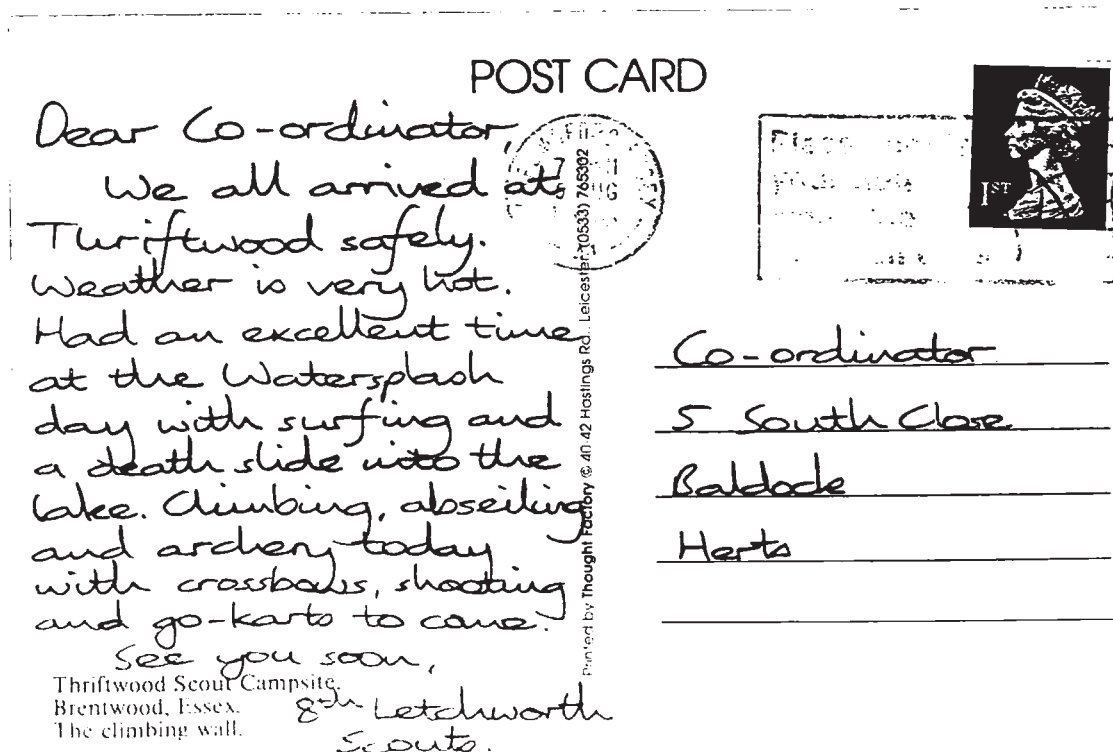 POST CARD
Dear Co-ordinator,
We all arrived at
Thriftwood safely.
Weather is very hot.
Had an excellent time
at the Watersplash
day with surfing and
a death slide into the
lake. Climbing, abseiling
and archery today
with crossbows, shooting
and go-karts to come.
See you soon,
8th Letchworth
Scouts.
Thriftwood Scout Campsite.
Brentwood, Essex.
The climbing wall.
Printed by Thought Factory © 40-42 Hastings Rd., Leicester (0533) 765302
1ST
Co-ordinator
5 South Close
Baldock
Herts